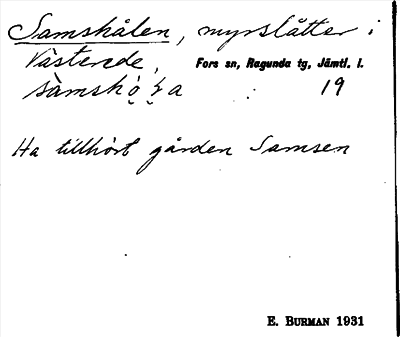 Samshålen, myrslåtter i
Västerede, Fors sn, Ragunda tg, Jämtl. l.
19
Ha tillhört gården Samsen
E. BURMAN 1931